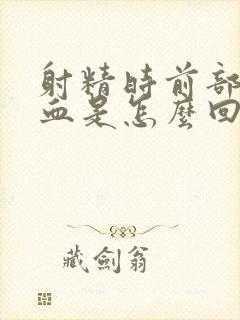 射精時前部
血是怎麼回
藏劍翁